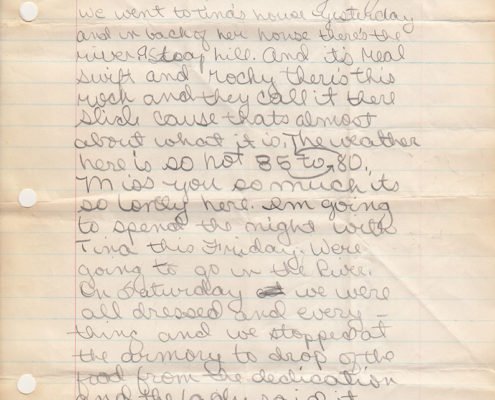 we went to tina's house yesterday
and in back of her house there's the
river & steap hill. And it's real
swift and rocky there's this
rock and they call it there
slide cause thats almost
about what it is. The weather
here is so hot 85 to 80.
Miss you so much its
so lonly here. Im going
to spend the night with
Tina this Friday. Were
going to go in the River.
On Saturday we were
all dressed and every-
thing and we stopped at
the armory to drop of the
food from the dedication
and the lady said it